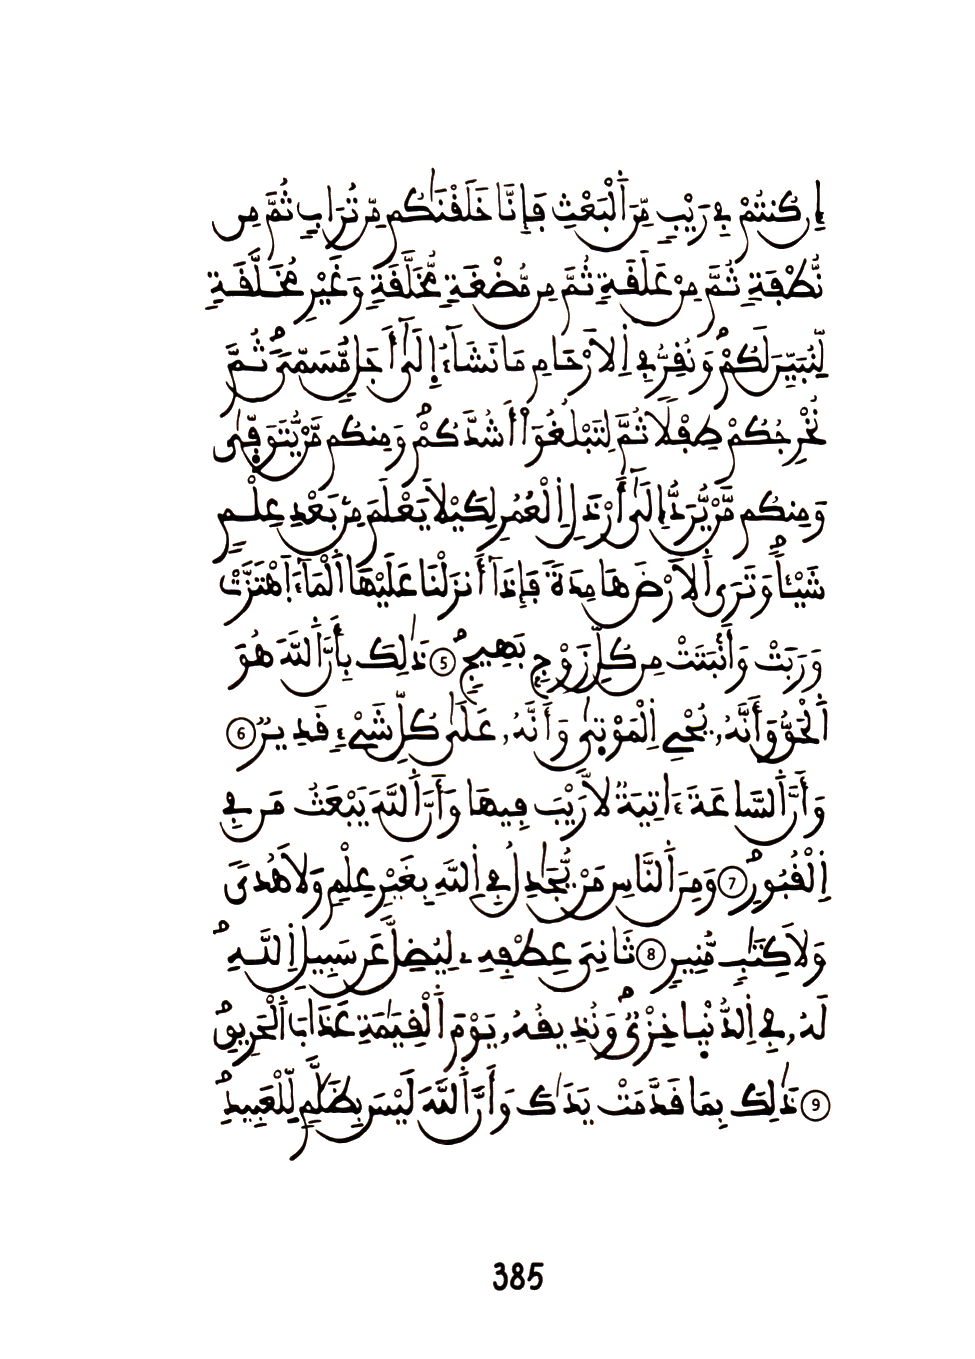 إِن كُنتُمْ فِي رَيْبٍ مِّنَ اَ۬لْبَعْثِ فَإِنَّا خَلَقْنَٰكُم مِّن تُرَابٍ ثُمَّ مِن
نُّطْفَةٍ ثُمَّ مِنْ عَلَقَةٍ ثُمَّ مِن مُّضْغَةٍ مُّخَلَّقَةٍ وَغَيْرِ مُخَلَّقَةٍ
لِّنُبَيِّنَ لَكُمْ وَنُقِرُّ فِي اِ۬لَارْحَامِ مَا نَشَآءُ إِلَىٰٓ أَجَلٍ مُّسَمّىٗ ثُمَّ
نُخْرِجُكُمْ طِفْلاٗ ثُمَّ لِتَبْلُغُوٓاْ أَشُدَّكُمْ وَمِنكُم مَّنْ يُّتَوَفّ۪ىٰ
وَمِنكُم مَّنْ يُّرَدُّ إِلَىٰٓ أَرْذَلِ اِ۬لْعُمُرِ لِكَيْلَا يَعْلَمَ مِنۢ بَعْدِ عِلْمٍ
شَيْـٔاٗ وَتَرَى اَ۬لَارْضَ هَامِدَةٗ فَإِذَآ أَنزَلْنَا عَلَيْهَا اَ۬لْمَآءَ اَ۪هْتَزَّتْ
وَرَبَتْ وَأَنۢبَتَتْ مِن كُلِّ زَوْجٍۢ بَهِيجٍ 5 ذَٰلِكَ بِأَنَّ اَ۬للَّهَ هُوَ
اَ۬لْحَقُّ وَأَنَّهُۥ يُحْيِ اِ۬لْمَوْت۪ىٰ وَأَنَّهُۥ عَلَىٰ كُلِّ شَيْءٍ قَدِيرٌ 6
وَأَنَّ اَ۬لسَّاعَةَ ءَاتِيَةٌ لَّا رَيْبَ فِيهَا وَأَنَّ اَ۬للَّهَ يَبْعَثُ مَن فِي
اِ۬لْقُبُورِ 7 وَمِنَ اَ۬لنَّاسِ مَنْ يُّجَٰدِلُ فِي اِ۬للَّهِ بِغَيْرِ عِلْمٍ وَلَا هُدىٗ
وَلَا كِتَٰبٍ مُّنِيرٍ 8 ثَانِيَ عِطْفِهِۦ لِيُضِلَّ عَن سَبِيلِ اِ۬للَّهِ
لَهُۥ فِي اِ۬لدُّنْي۪ا خِزْيٌ وَنُذِيقُهُۥ يَوْمَ اَ۬لْقِيَٰمَةِ عَذَابَ اَ۬لْحَرِيقِ
9 ذَٰلِكَ بِمَا قَدَّمَتْ يَدَٰكَ وَأَنَّ اَ۬للَّهَ لَيْسَ بِظَلَّٰمٍ لِّلْعَبِيدِ
385